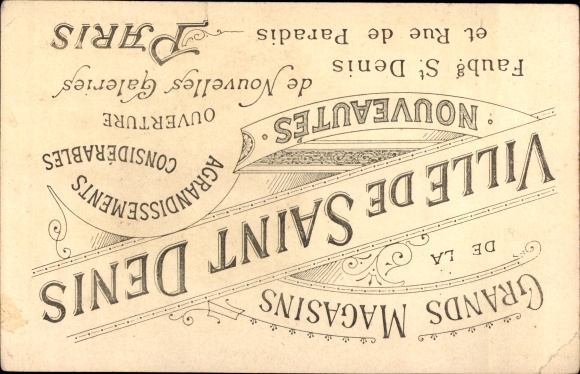 GRANDS MAGASINS
DE LA
VILLE DE SAINT DENIS
NOUVEAUTÉS
AGRANDISSEMENTS
CONSIDÉRABLES
OUVERTURE
de Nouvelles Galeries
Faubg. St. Denis
et Rue de Paradis
PARIS